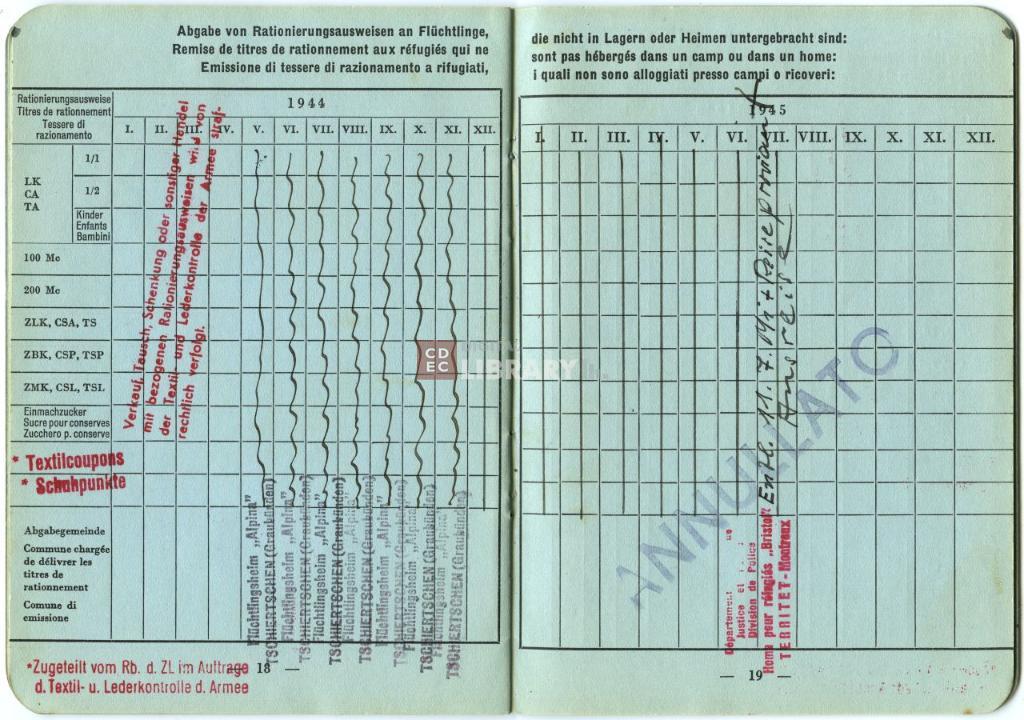 Abgabe von Rationierungsausweisen an Flüchtlinge,
Remise de titres de rationnement aux réfugiés qui ne
Emissione di tessere di razionamento a rifugiati,
Rationierungsausweise
Titres de rationnement
Tessere di
razionamento
1944
I. II. III. IV. V. VI. VII. VIII. IX. X. XI. XII.
LK
CA
TA
1/1
1/2
Kinder
Enfants
Bambini
100 Mc
200 Mc
ZLK, CSA, TS
ZBK, CSP, TSP
ZMK, CSL, TSL
Einmachzucker
Sucre pour conserves
Zucchero p. conserve
* Textilcoupons
* Schuhpunkte
Abgabegemeinde
Commune chargée
de délivrer les
titres de
rationnement
Comune di
emissione
Verkauf, Tausch, Schenkung oder sonstiger Handel
mit bezogenen Rationierungsausweisen wird von
der Textil- und Lederkontrolle der Armee straf-
rechtlich verfolgt.
Flüchtlingsheim „Alpina"
TSCHIERTSCHEN (Graubünden)
Flüchtlingsheim „Alpina"
TSCHIERTSCHEN (Graubünden)
Flüchtlingsheim „Alpina"
TSCHIERTSCHEN (Graubünden)
Flüchtlingsheim „Alpina"
TSCHIERTSCHEN (Graubünden)
Flüchtlingsheim „Alpina"
TSCHIERTSCHEN (Graubünden)
Flüchtlingsheim „Alpina"
TSCHIERTSCHEN (Graubünden)
Flüchtlingsheim „Alpina"
TSCHIERTSCHEN (Graubünden)
*Zugeteilt vom Rb. d. ZL im Auftrage
d. Textil- u. Lederkontrolle d. Armee
18 —
die nicht in Lagern oder Heimen untergebracht sind:
sont pas hébergés dans un camp ou dans un home:
i quali non sono alloggiati presso campi o ricoveri:
1945
I. II. III. IV. V. VI. VII. VIII. IX. X. XI. XII.
Entl. 11. 7. Mit Reiseproviant
Ausreise
ANNULLATO
Département
Justice Et
Division de Police
Home pour réfugiés „Bristol"
TERRITET-Montreux
— 19 —
CDEC
LIBRARY